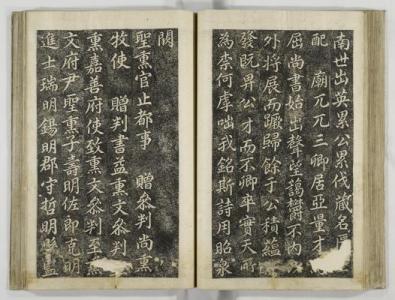 南世出英累公累伐藏名
配 廟兀兀三卿居亞量才
屈尚書始出望藹欝不内
外将展而蹶歸餘于公積蘊
發既昇公才而不卿卒實天所
為柰何虖咄我銘斯詩用昭泉
闕
聖熏官止都事 贈叅判尚熏
牧使 贈判書益熏文叅判
熏嘉善府使致熏文叅判至熏
文府尹聖熏子壽明佐郎克明
進士瑞明錫明郡守哲明縣監